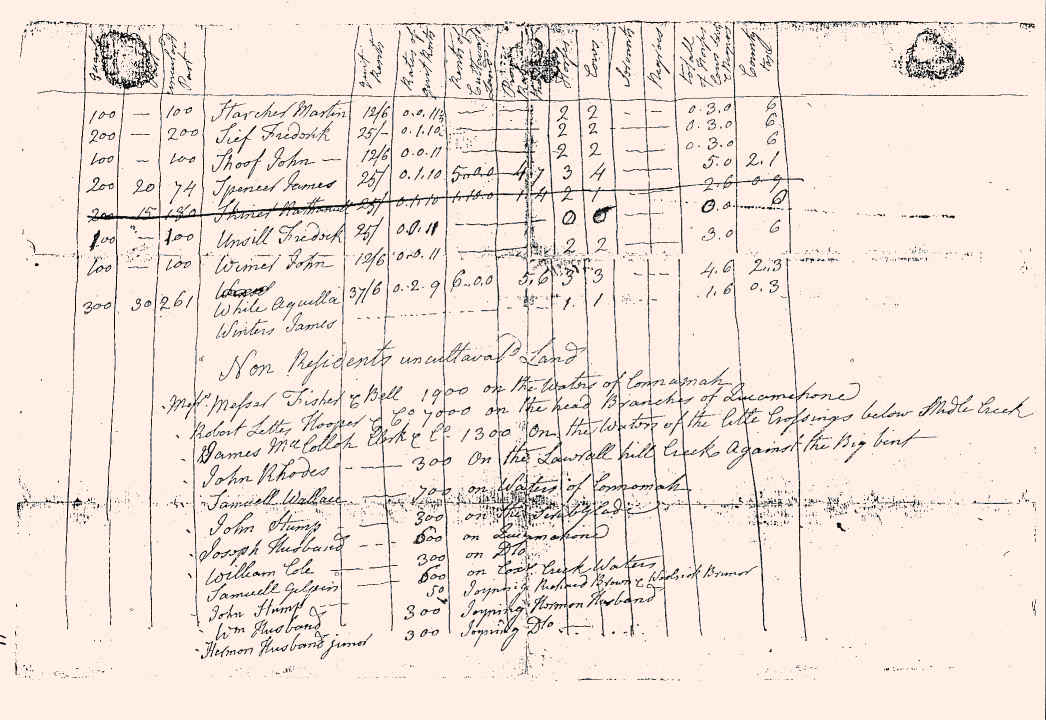 Horses Cows Servants Negroes Total of Horses Cows County Tax
100 — 100 Starcher Martin 12/6 0.0.11½ — — 2 2 — — 0.3.0 6
200 — 200 Sief Fredorik 25/- 0.1.10 — — 2 2 — — 0.3.0 6
100 — 100 Shoof John — 12/6 0.0.11 — — 2 2 — — 0.3.0 6
200 20 74 Spencer James 25/ 0.1.10 5.0.0 4.7 3 4 — — 5.0 2.1
200 15 130 25/ 0.1.10 1.10.0 1.4 2 1 — — 2.6 0.9
100 — 100 Unsill Fredock 25/ 0.0.11 — — 0 0 — — 0.0 0
100 — 100 Wimer John 12/6 0.0.11 — — 2 2 — — 3.0 6
300 30 261 White Aquilla 37/6 0.2.9 6.0.0 5.6 3 3 — — 4.6 2.3
Winters James 1. 1 1.6 0.3
Non Residents uncultavatd Land
Messrs. Messer Fisher & Bell 1900 on the Waters of Connamah
Robert Letter Hooper & Co 7000 on the head Branches of Quamahone
James McColloh Clerk & Co 1300 On the Waters of the little Crossings below Midle Creek
John Rhodes — 300 On the Lawrall hill Creek Against the Big bint
Samuell Wallace — 700 on Waters of Connamah
John Stump — 300 on the
Joseph Husband — 600 on Quamahone
William Cole — 300 on Dto
Samuell Gilpin — 600 on Coxs Creek Waters
John Stump — 50 Joyning Richard Brown & Woolrick Bruner
Wm Husband 300 Joyning Hermon Husband
Hermon Husband junior 300 Joyning Dto —